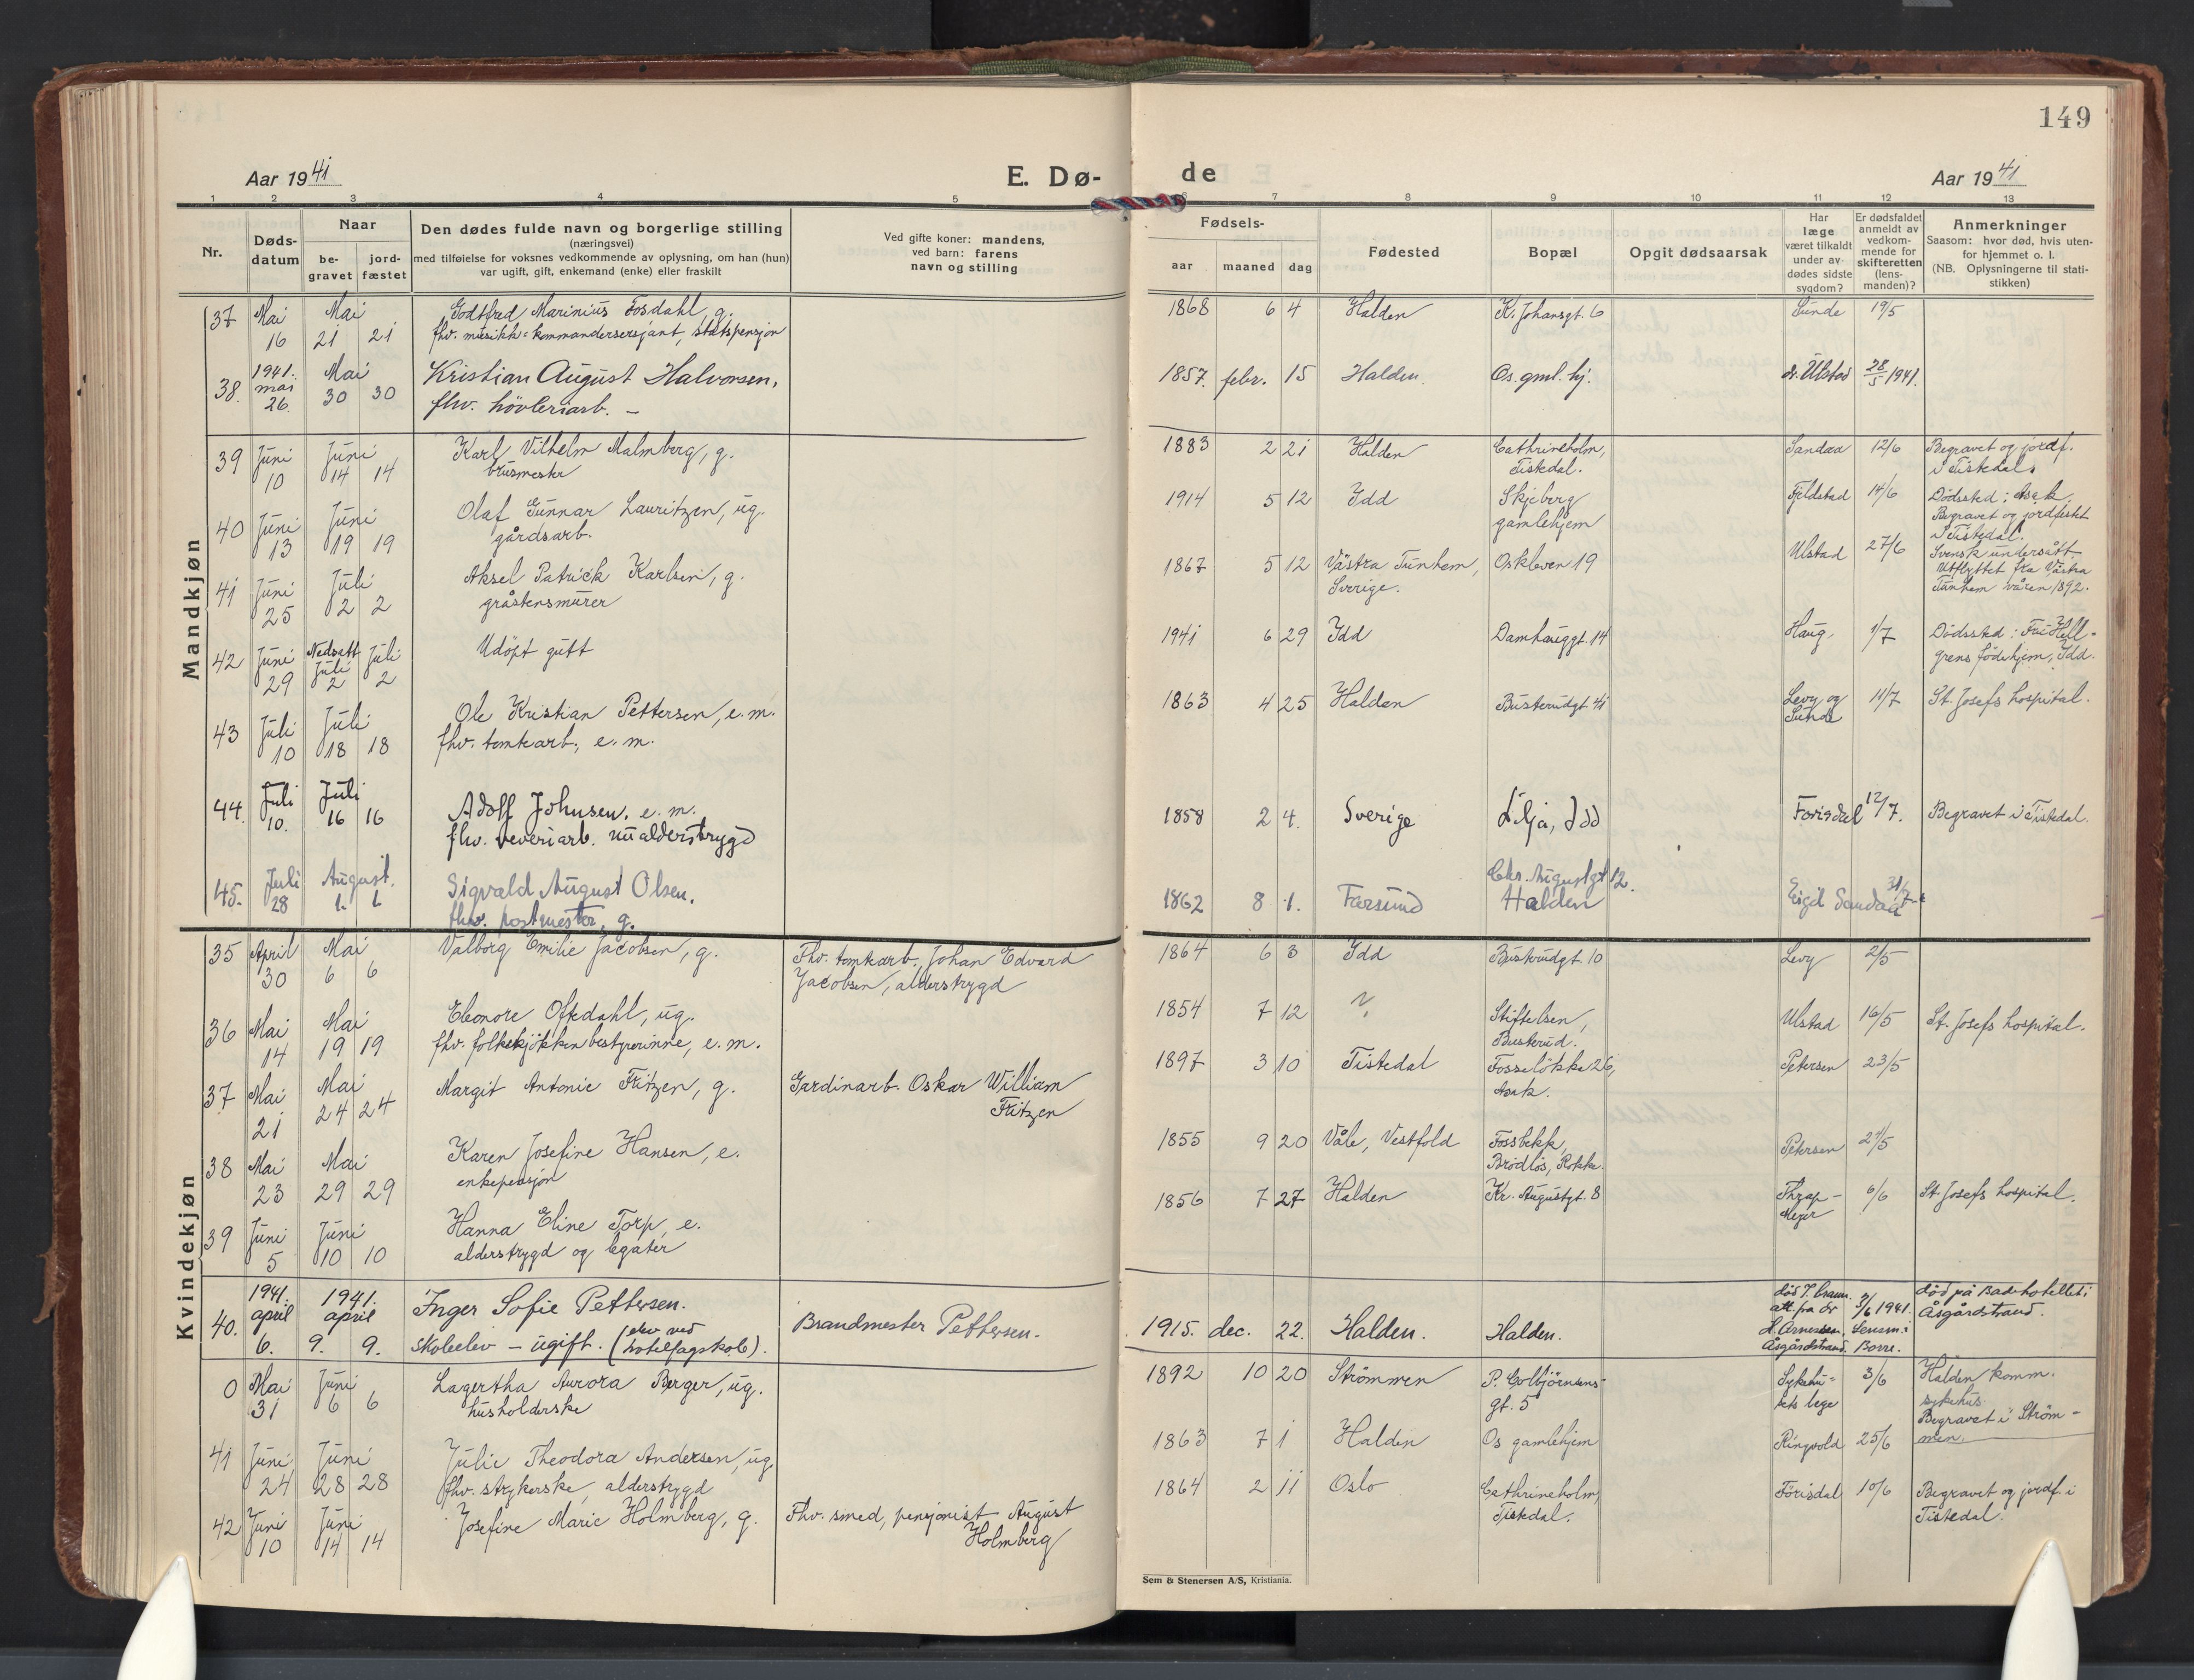 149
Aar 1941
E. Dø-
de
Aar 1941
1 2 3 4 5 6 7 8 9 10 11 12 13
Nr.
Døds-
datum
Naar
be-
gravet
jord-
fæstet
Den dødes fulde navn og borgerlige stilling
(næringsvei)
med tilføielse for voksnes vedkommende av oplysning, om han (hun)
var ugift, gift, enkemand (enke) eller fraskilt
Ved gifte koner: mandens,
ved barn: farens
navn og stilling
Fødsels-
aar maaned dag
Fødested
Bopæl
Opgit dødsaarsak
Har
læge
været tilkaldt
under av-
dødes sidste
sygdom?
Er dødsfaldet
anmeldt av
vedkom-
mende for
skifteretten
(lens-
manden)?
Anmerkninger
Saasom: hvor død, hvis uten-
for hjemmet o. l.
(NB. Oplysningerne til stati-
stikken)
Mandkjøn
37 Mai 16 Mai 21 21 Godtfred Marinius Fosdahl, g. 1868 6 4 Halden K. Johansgt. 6 Sunde 19/5
fhv. musikk-kommandersersjant, statspensjon
38. 1941. mai 26. Mai 30 30 Kristian August Halvorsen, 1857. febr. 15 Halden. Os. gml. hj. dr. Ulstad 28/5 1941.
fhv. hövleriarb. –
39 Juni 10 Juni 14 14 Karl Vilhelm Malmberg, g. 1883 2 21 Halden Cathrineholm, Sandaa 12/6 Begravet og jordf.
brusmester Tistedal. i Tistedal.
40 Juni 13 Juni 19 19 Olaf Gunnar Lauritzen, ug. 1914 5 12 Idd Skjeberg Fjeldstad 14/6 Dödssted: Asak.
gårdsarb. gamlehjem Begravet og jordfestet
i Tistedal.
41 Juni 25 Juli 2 2 Aksel Patrick Karlsen, g. 1867 5 12 Västra Tunhem, Oskleven 19 Ulstad 27/6 Svensk undersått
gråstensmurer Sverige. Utflyttet fra Västra
Tunhem våren 1892.
42 Juni 29 Nedsatt Juli 2 Juli 2 Udöpt gutt 1941 6 29 Idd Damhauggt. 14 Haug 1/7 Dödssted: Fru Hell-
grens födehjem, Idd.
43 Juli 10 Juli 18 18 Ole Kristian Pettersen, e. m. 1863 4 25 Halden Busterudgt 41 Levy og 11/7 St. Josefs hospital.
fhv. tomtearb., e. m. Sunde
44. Juli 10. Juli 16 16 Adolf Johnsen, e. m. 1858 2 4. Sverige Lilja, Idd Forisdal 12/7. Begravet i Tistedal.
fhv. veveriarb. nu alderstrygd
45. Juli 28 August. 1. 1. Sigvald August Olsen. 1862 8 1. Farsund Chr. Augustgt 12. Eigil Sandaa 31/7
fhv. postmester, g. Halden
Kvindekjøn
35 April 30 Mai 6 6 Valborg Emilie Jacobsen, g. Fhv. tomtearb. Johan Edvard 1864 6 3 Idd Busterudgt 10 Levy 2/5
Jacobsen, alderstrygd
36 Mai 14 Mai 19 19 Eleonore Oftedahl, ug. 1854 7 12 ? Stiftelsen, Ulstad 16/5 St. Josefs hospital.
fhv. folkekjökkenbestyrerinne, e. m. Busterud.
37 Mai 21 Mai 24 24 Margit Antonie Fritzen, g. Gardinarb. Oskar William 1897 3 10 Tistedal Fosselökka 26, Petersen 23/5
Fritzen Asak.
38 Mai 23 Mai 29 29 Karen Josefine Hansen, e. 1855 9 20 Våle, Vestfold Fossbekk, Petersen 27/5
enkepensjon Brödlös, Rokke.
39 Juni 5 Juni 10 10 Hanna Eline Torp, e. 1856 7 27 Halden Kr. Augustgt. 8 Thrap- 6/6 St. Josefs hospital.
alderstrygd og legater Meyer
40. 1941. april 6. 1941. april 9. 9. Inger Sofie Pettersen. Brandmester Pettersen. 1915. dec. 22. Halden. Halden. att. fra dr 3/6 1941. död på Badehotellet i
skoleelev – ugift. (elev ved hotelfagskole). H. Arnesen, Lensm. i Åsgårdstrand.
Åsgårdstrand. Borre.
0 Mai 31 Juni 6 6 Lagertha Aurora Berger, ug. 1892 10 20 Strömmen P. Colbjörnsens- Sykehu- 3/6 Halden komm.
husholderske gt. 5 sets lege sykehus.
Begravet i Ström-
men.
41 Juni 24 Juni 28 28 Julie Theodora Andersen, ug. 1863 7 1 Halden Os gamlehjem Ringvold 25/6
fhv. strykerske, alderstrygd
42 Juni 10 Juni 14 14 Josefine Marie Holmberg, g. Fhv. smed, pensjonist August 1864 2 11 Oslo Cathrineholm, Förisdal 10/6 Begravet og jordf. i
Holmberg Tistedal. Tistedal.
Sem & Stenersen A/S, Kristiania.